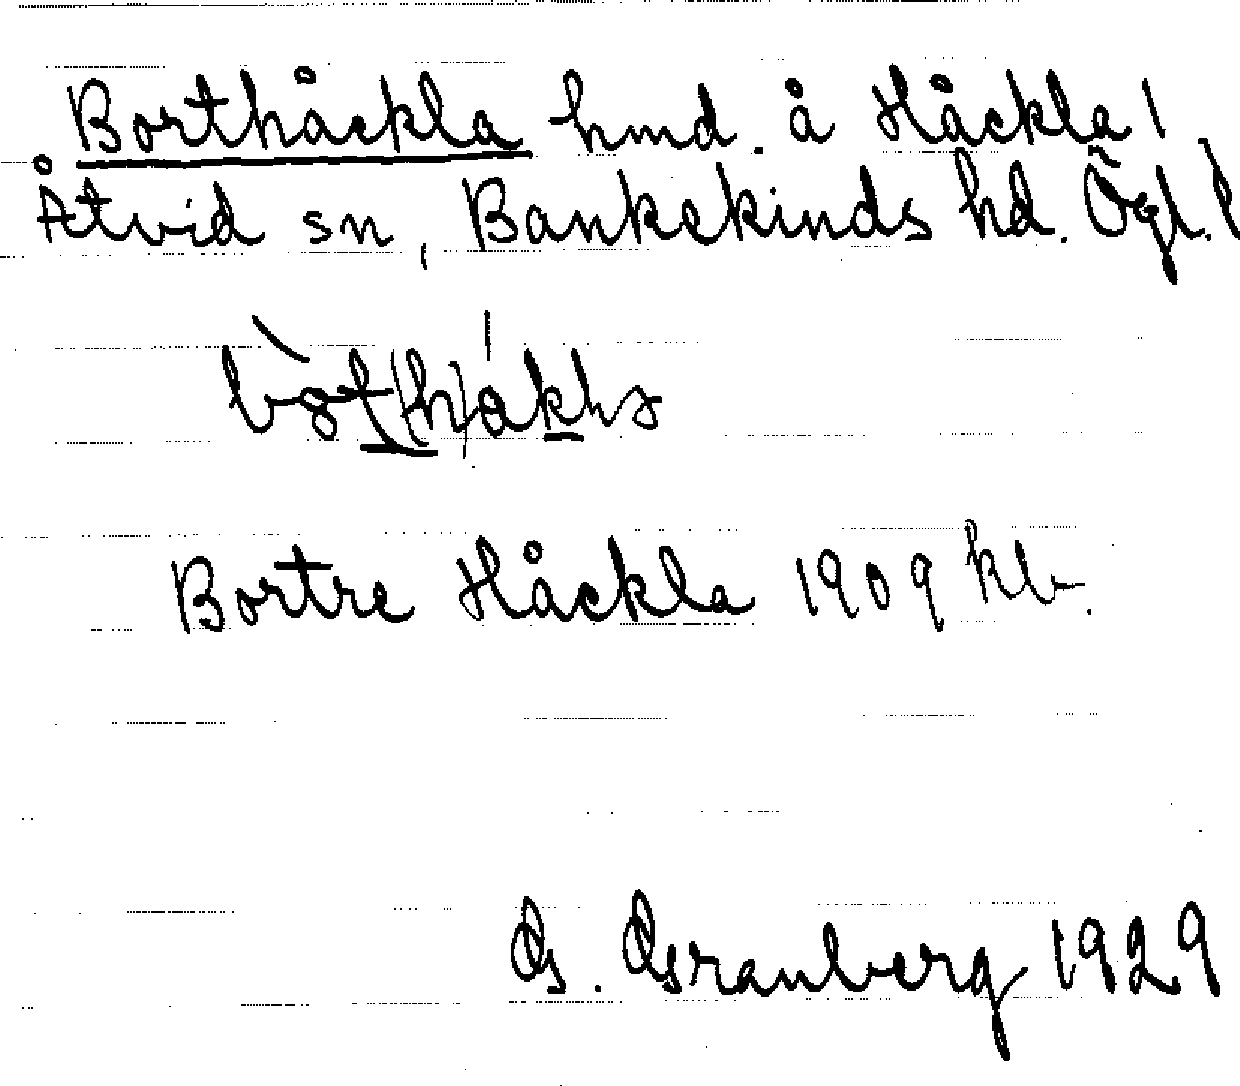 Borthåckla hmd. å Håckla 1
Åtvid sn, Bankekinds hd. Ögl. l
Bortre Håckla 1909 kb.
G. Granberg 1929